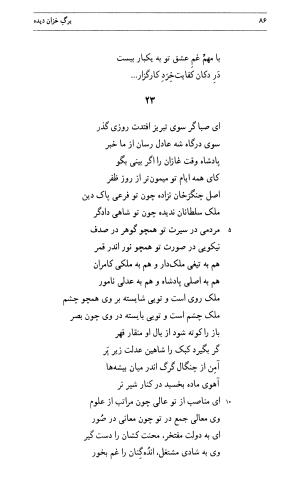 ۸۶ برگِ خزان دیده
با مهمِّ غمِ عشق تو به یکبار ببست
دَرِ دکان کفایت خِرَدِ کارگزار...
۲۳
ای صبا گر سوی تبریز افتدت روزی گذر
سوی درگاه شه عادل رسان از ما خبر
پادشاه وقت غازان را اگر بینی بگو
کای همه ایام تو میمون‌تر از روز ظفر
اصل چنگزخان نزاده چون تو فرعی پاک دین
ملک سلطانان ندیده چون تو شاهی دادگر
۵ مردمی در سیرت تو همچو گوهر در صدف
نیکویی در صورت تو همچو نور اندر قمر
هم به تیغی ملک‌دار و هم به ملکی کامران
هم به اصلی پادشاه و هم به عدلی نامور
ملک روی است و تویی شایسته بر وی همچو چشم
ملک چشم است و تویی بایسته در وی چون بصر
باز را کوته شود از بال او منقار قهر
گر بگیرد کبک را شاهین عدلت زیر پَر
آمِن از چنگال گرگ اندر میان بیشه‌ها
آهوی ماده بخسبد در کنار شیر نر
۱۰ ای مناصب از تو عالی چون مراتب از علوم
وی معالی جمع در تو چون معانی در صُوَر
ای به دولت مفتخر، محنت کشان را دست گیر
وی به شادی مشتغل، اندُه‌گِنان را غم بخور